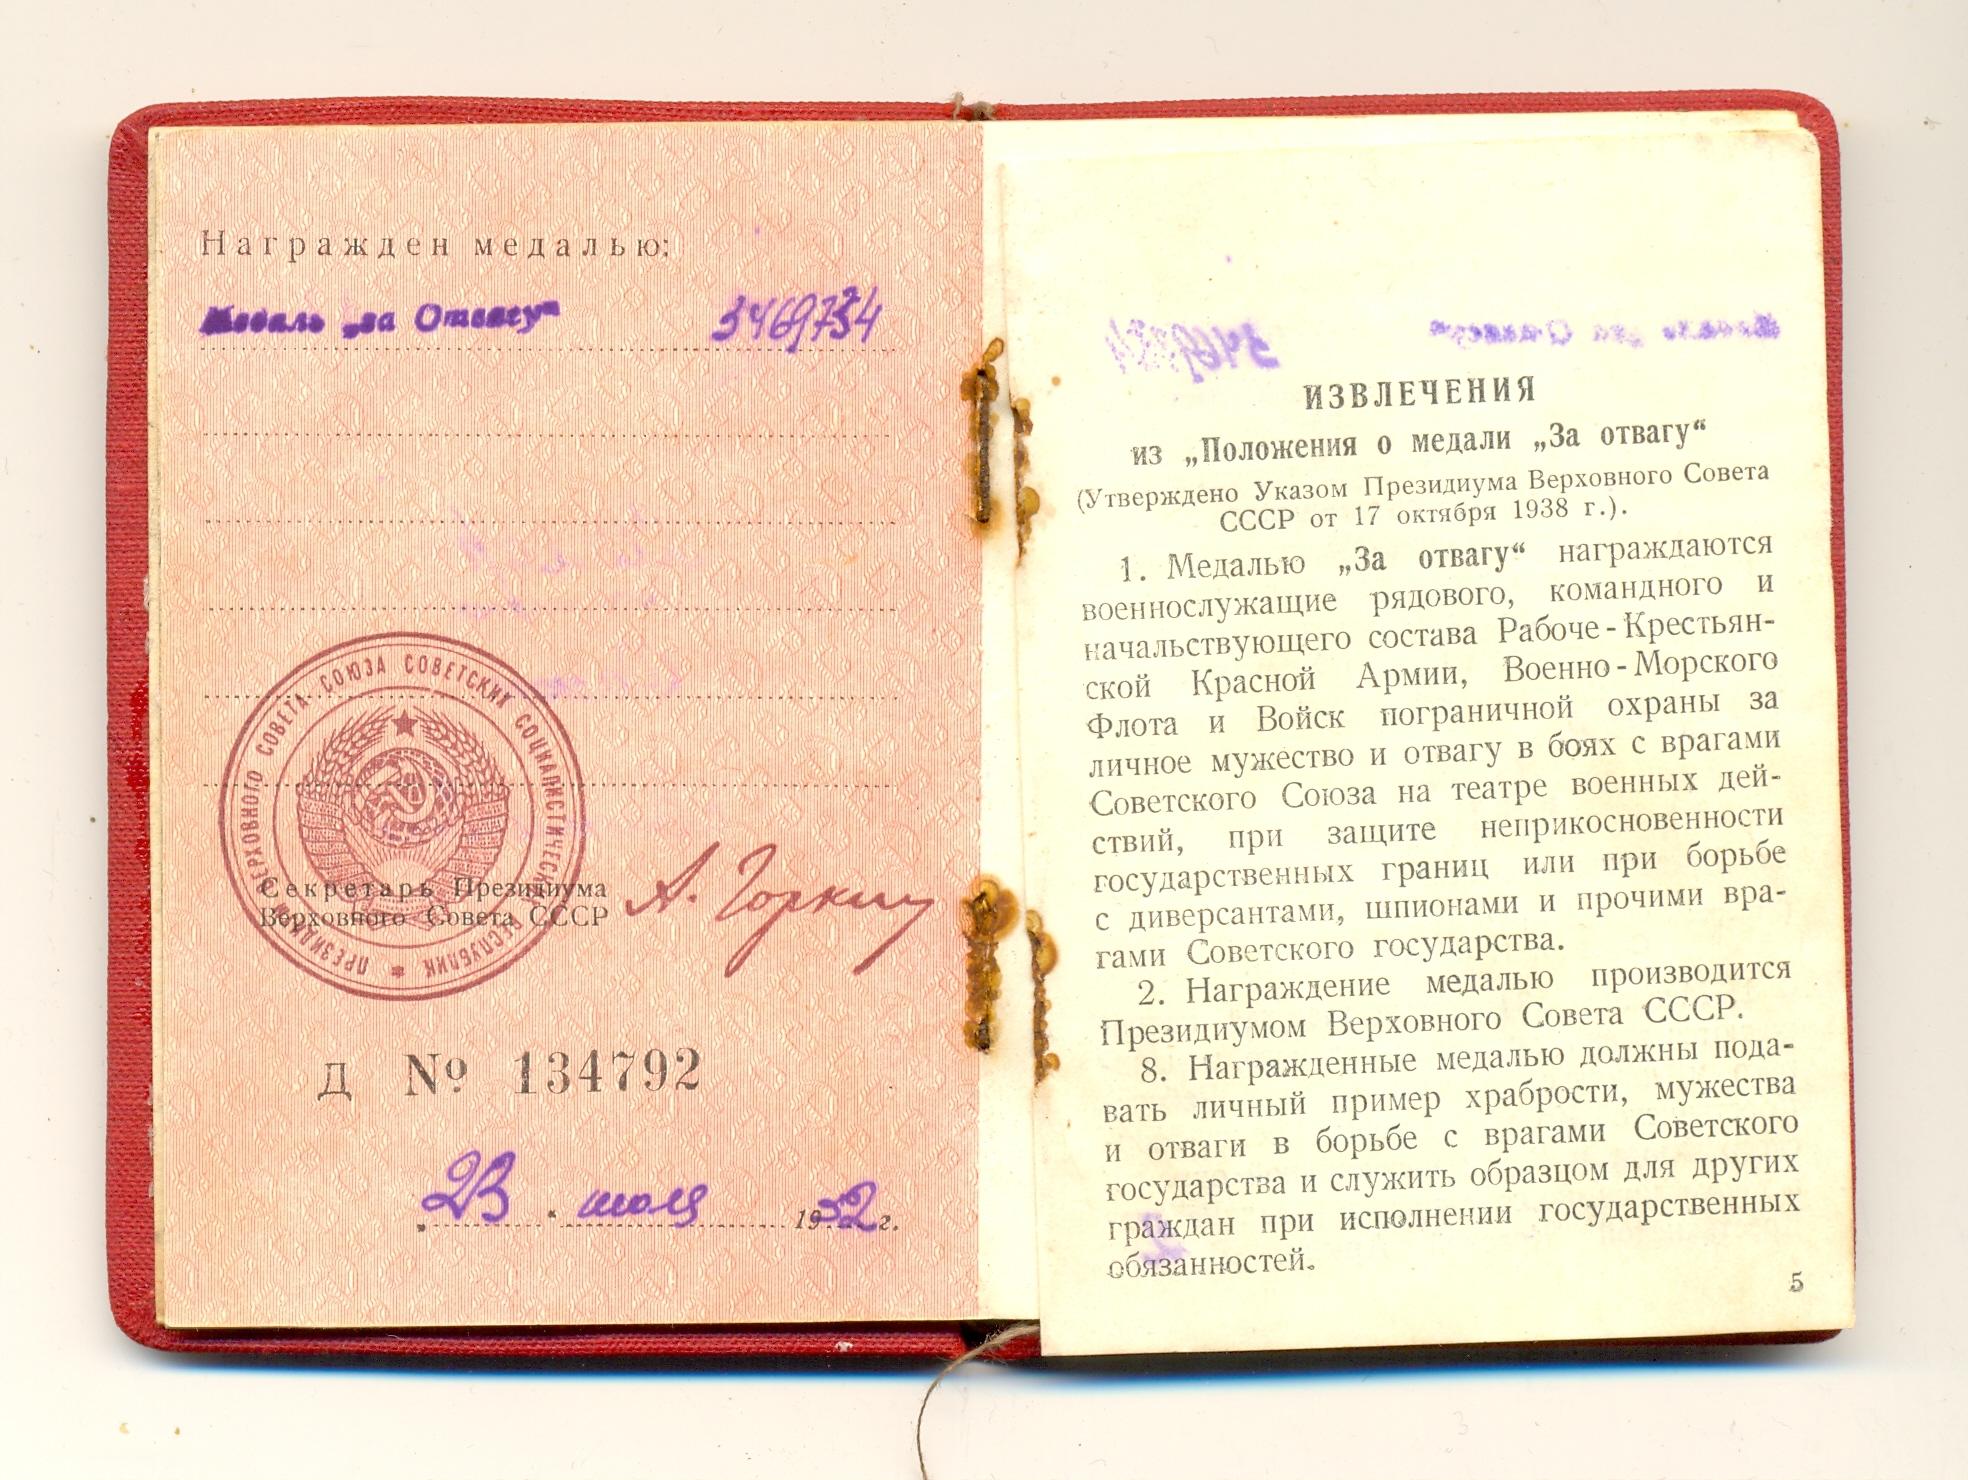 Награжден медалью:
Медаль „за Отвагу“
ПРЕЗИДИУМ ВЕРХОВНОГО СОВЕТА СОЮЗА СОВЕТСКИХ СОЦИАЛИСТИЧЕСКИХ РЕСПУБЛИК *
Секретарь Президиума
Верховного Совета СССР А. Горкин
Д № 134792
„23“ июля 1952 г.
ИЗВЛЕЧЕНИЯ
из „Положения о медали „За отвагу“
(Утверждено Указом Президиума Верховного Совета
СССР от 17 октября 1938 г.).
1. Медалью „За отвагу“ награждаются
военнослужащие рядового, командного и
начальствующего состава Рабоче-Крестьян-
ской Красной Армии, Военно-Морского
Флота и Войск пограничной охраны за
личное мужество и отвагу в боях с врагами
Советского Союза на театре военных дей-
ствий, при защите неприкосновенности
государственных границ или при борьбе
с диверсантами, шпионами и прочими вра-
гами Советского государства.
2. Награждение медалью производится
Президиумом Верховного Совета СССР.
8. Награжденные медалью должны пода-
вать личный пример храбрости, мужества
и отваги в борьбе с врагами Советского
государства и служить образцом для других
граждан при исполнении государственных
обязанностей.
5